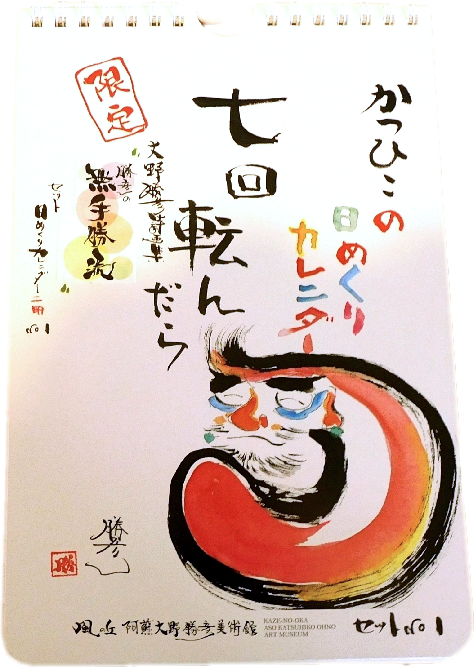 かつひこの
日めくり
カレンダー
七回転んだら
限定
大野勝彦詩画集
勝彦の
無手勝流
セット
日めくりカレンダー二冊
No1
勝彦
風の丘 阿蘇大野勝彦美術館
KAZE-NO-OKA
ASO KATSUHIKO OHNO
ART MUSEUM
セット No1